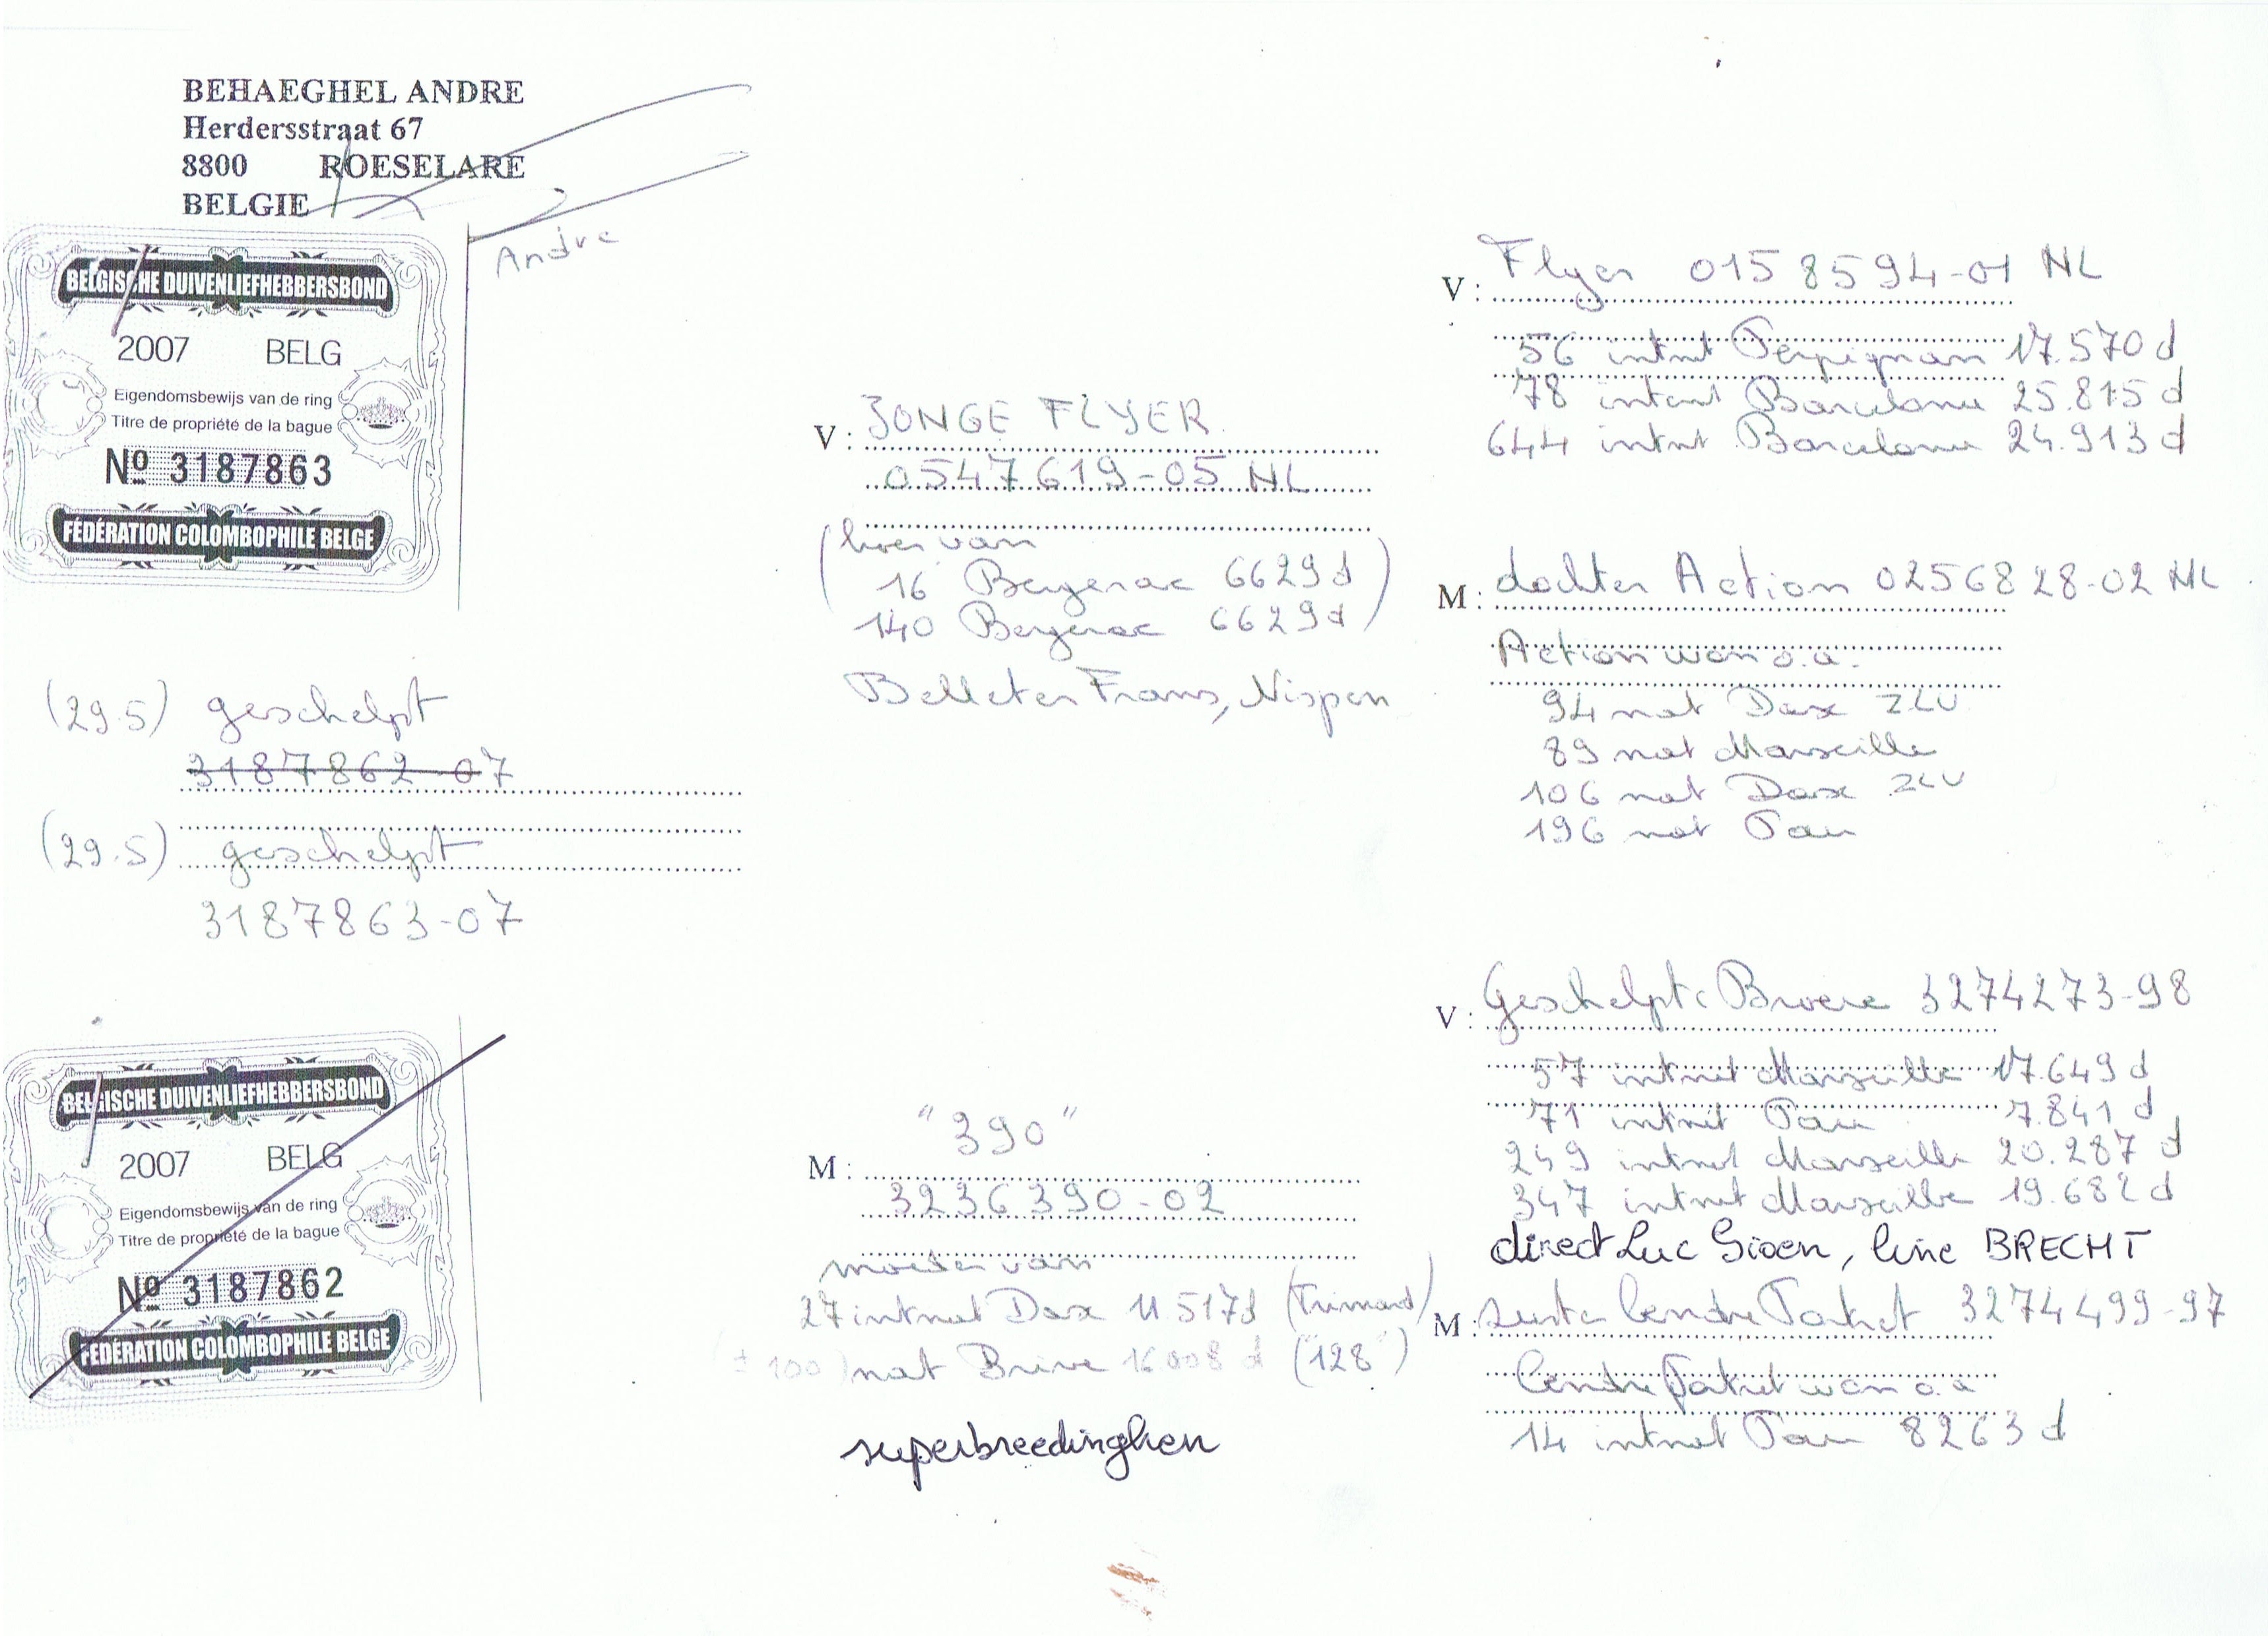 BEHAEGHEL ANDRE
Herdersstraat 67
8800 ROESELARE
BELGIE
Andre
BELGISCHE DUIVENLIEFHEBBERSBOND
2007 BELG
Eigendomsbewijs van de ring
Titre de propriété de la bague
Nº 3187863
FÉDÉRATION COLOMBOPHILE BELGE
(29.5) geschelpt
3187862-07
(29.5) geschelpt
3187863-07
BELGISCHE DUIVENLIEFHEBBERSBOND
2007 BELG
Eigendomsbewijs van de ring
Titre de propriété de la bague
Nº 3187862
FÉDÉRATION COLOMBOPHILE BELGE
V: JONGE FLYER
0547619-05 NL
(broer van
16 Bergerac 6629 d
140 Bergerac 6629 d)
Belleter Frans, Nispen
M: "390"
3236390-02
moeder van
27 intnat Dax 11.517 d (Trimard)
(± 100) nat Brive 16008 d ("128")
superbreedinghen
V: Flyer 0158594-01 NL
56 intnt Perpignan 17.570 d
78 intnt Barcelona 25.815 d
644 intnt Barcelona 24.913 d
M: dochter Action 0256828-02 NL
Action won o.a.
94 nat Dax ZLU
89 nat Marseille
106 nat Dax ZLU
196 nat Pau
V: Geschelpte Broere 3274273-98
57 intnat Marseille 17.649 d
71 intnat Pau 7.841 d
249 intnat Marseille 20.287 d
347 intnat Marseille 19.682 d
direct Luc Sioen, line BRECHT
M: zuster Cendre Patriet 3274499-97
Cendre Patriet won o.a
14 intnat Pau 8263 d